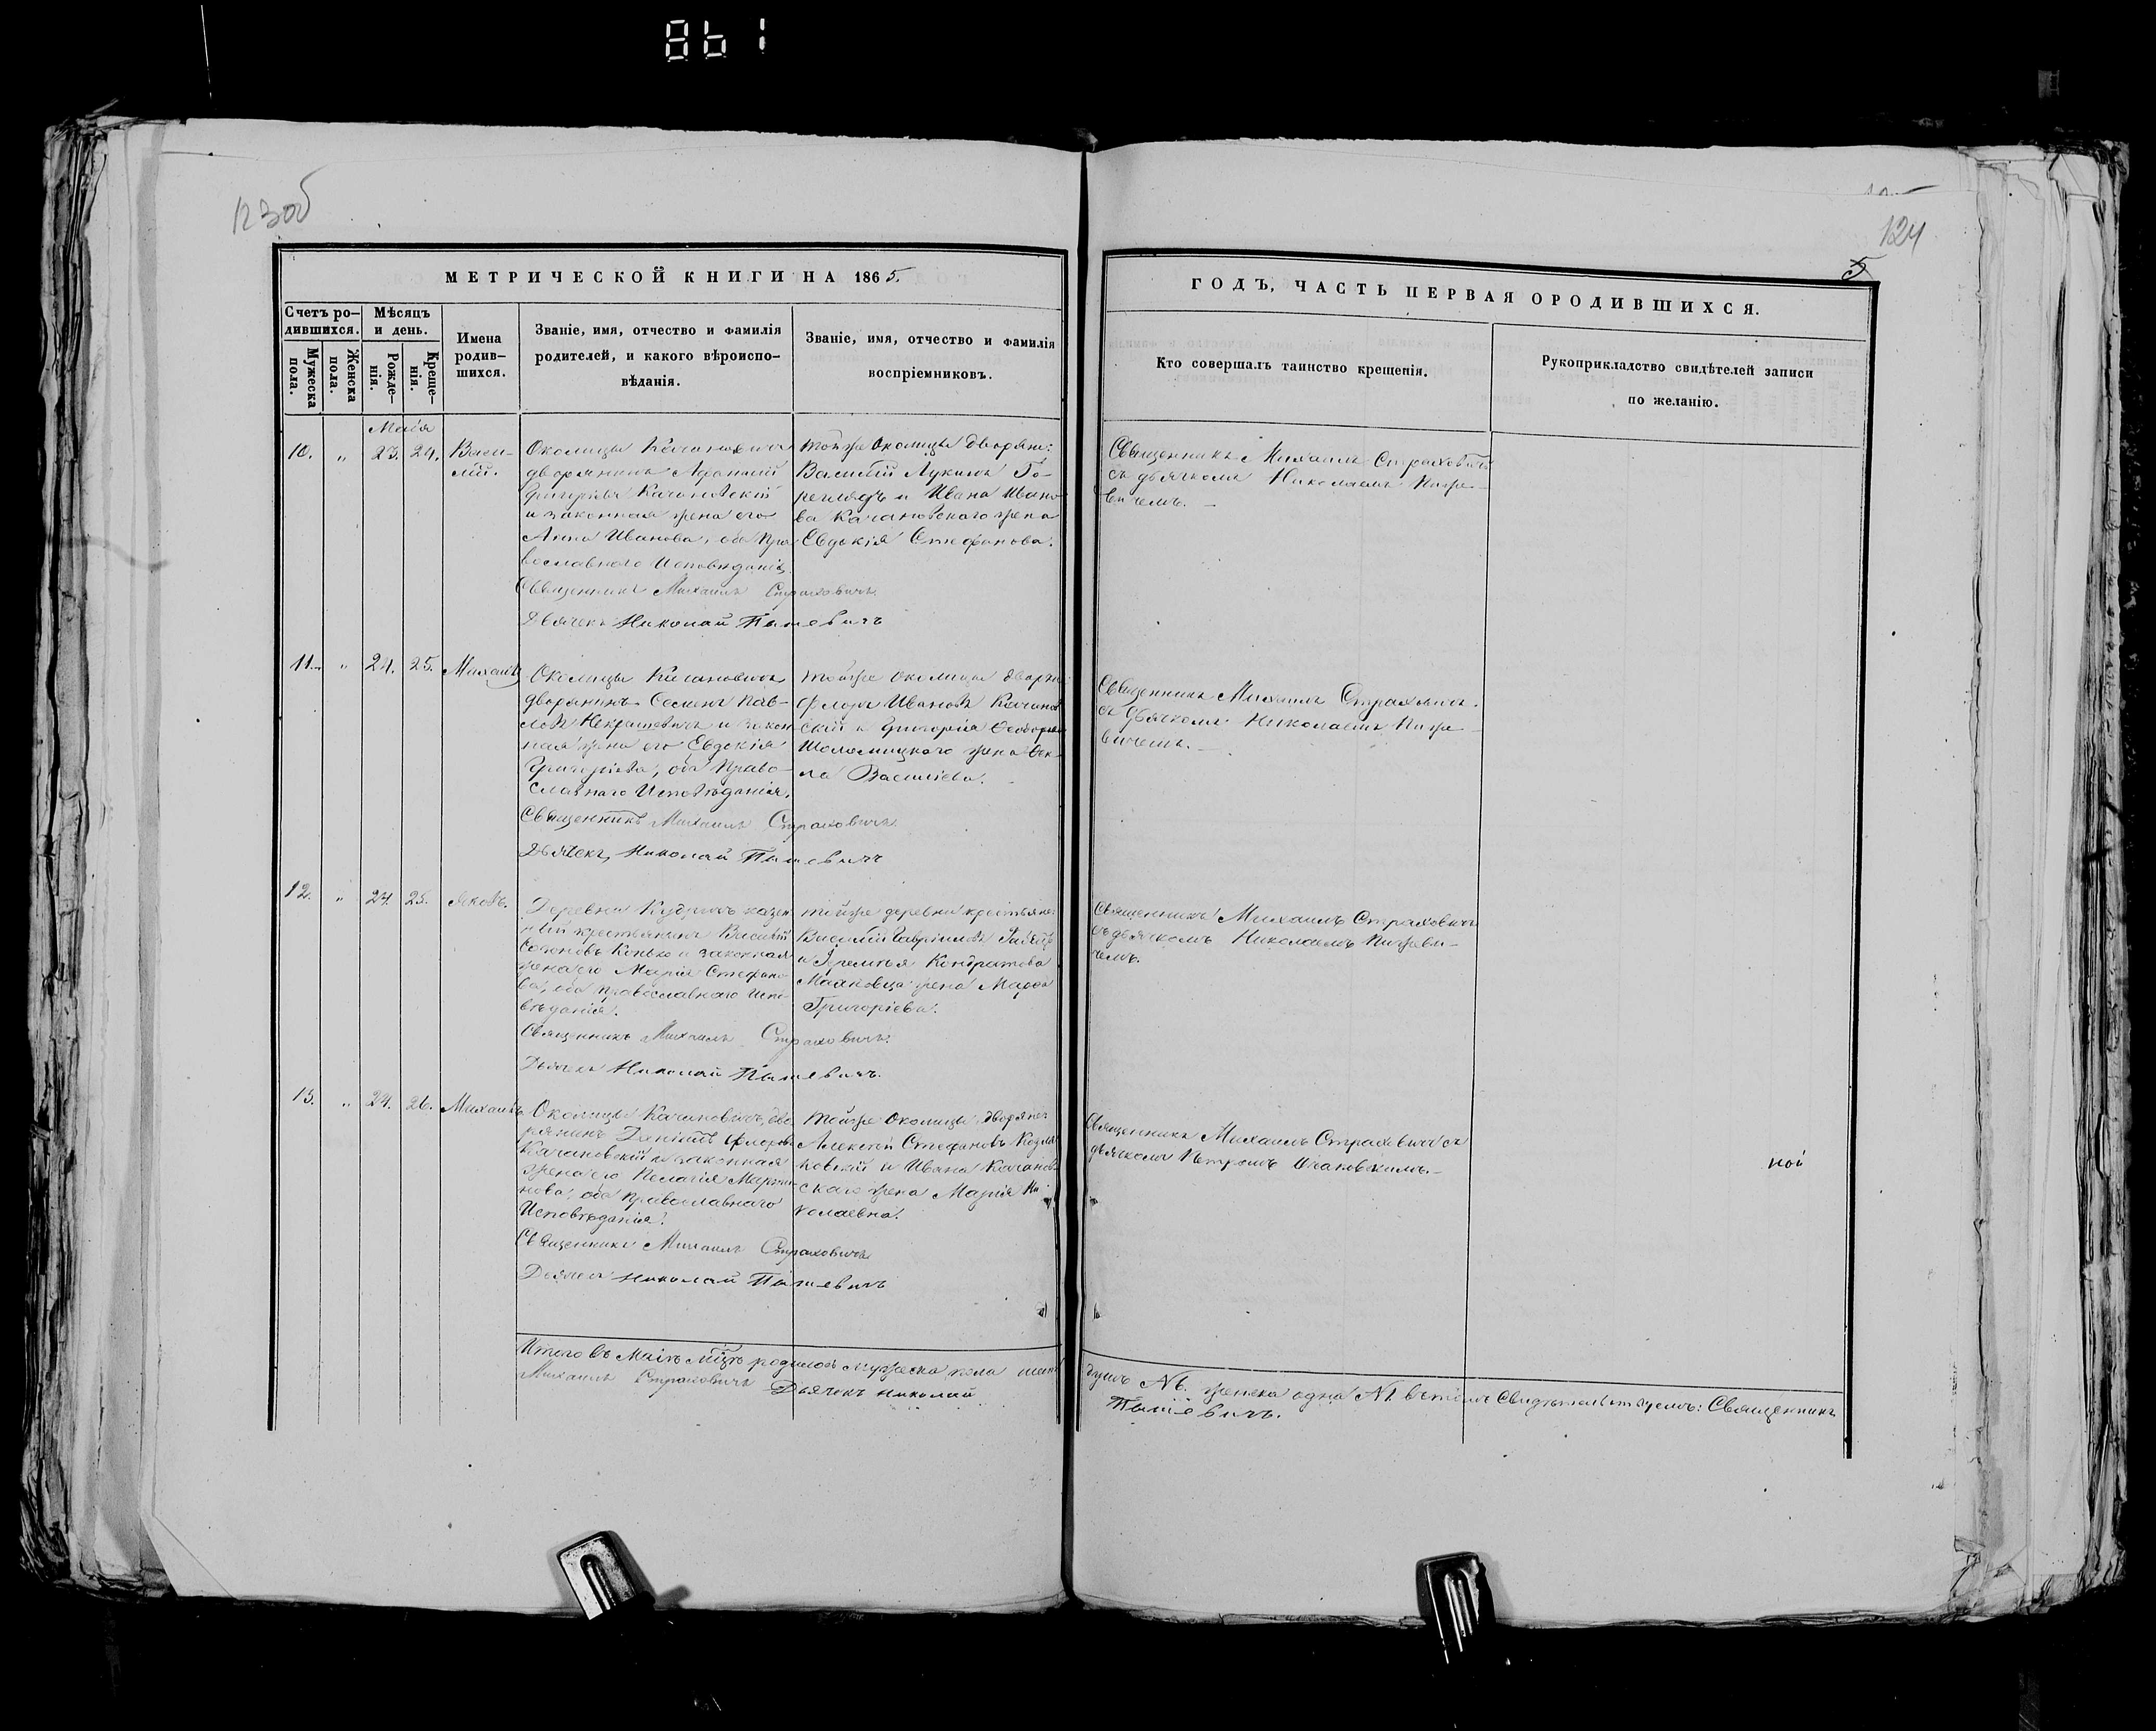 1981
123об
124
5
МЕТРИЧЕСКОЙ КНИГИ НА 1865.
Счетъ родившихся.
Мужеска пола.
Женска пола.
Мѣсяцъ и день.
Рожденія.
Крещенія.
Имена родившихся.
Званіе, имя, отчество и фамилія
родителей, и какого вѣроиспо-
вѣданія.
Званіе, имя, отчество и фамилія
воспріемниковъ.
ГОДЪ, ЧАСТЬ ПЕРВАЯ О РОДИВШИХСЯ.
Кто совершалъ таинство крещенія.
Рукоприкладство свидѣтелей записи
по желанію.
Маія
10. " 23. 24. Васи-
лій.
Околицы Качановичъ
дворянинъ Афанасій
Григоріевъ Качановскій
и законная жена его
Анна Иванова, оба Пра
вославнаго Исповѣданія.
Священникъ Михаилъ Страховичъ.
Дьячекъ Николай
тойже Околицы дворяне:
Василій Лукинъ
и Ивана Ивано
ва Качановскаго жена
Евдокія Стефанова.
Священникъ Михаилъ Страховичъ
съ дьячкомъ Николаемъ
вичемъ.
11. " 24. 25. Михаилъ
Околицы Качановичъ
дворянинъ Семенъ Пав-
ловъ Некрашевичъ и закон
ная жена его Евдокія
Григоріева, оба Право-
славнаго Исповѣданія.
Священникъ Михаилъ Страховичъ.
Дьячекъ Николай
тойже околицы дворяне
Флоръ Ивановъ Качанов
скій и Григорія
жена Фек-
ла Василіева.
Священникъ Михаилъ Страховичъ
съ дьячкомъ Николаемъ
вичемъ.
12. " 24. 25. Яковъ.
Деревни Кудричъ казен
ный крестьянинъ Василій
Конько и законная
жена его Марія Стефано
ва, оба православнаго Испо-
вѣданія.
Священникъ Михаилъ Страховичъ.
Дьячекъ Николай
тойже деревни крестьяне:
Василій Гавріиловъ
и Іеремѣя Кондратова
жена Марѳа
Григоріева.
Священникъ Михаилъ Страховичъ
съ дьячкомъ Николаемъ
чемъ.
13. " 24. 26. Михаилъ
Околицы Качановичъ дво
рянинъ Флоровъ
Качановскій и законная
жена его Пелагія Марти
нова, оба православнаго
Исповѣданія.
Священникъ Михаилъ Страховичъ
Дьячекъ Николай
тойже Околицы дворяне:
Алексѣй Стефановъ Козля
ковскій и Ивана Качанов
скаго жена Марія Ни-
колаевна.
Священникъ Михаилъ Страховичъ съ
дьячкомъ Петромъ
ной
Итого въ Маіѣ мѣсяцѣ родилось мужеска пола шесть душъ №6. женска одна №1. въ томъ свидѣтельствуемъ: Священникъ
Михаилъ Страховичъ Дьячекъ Николай